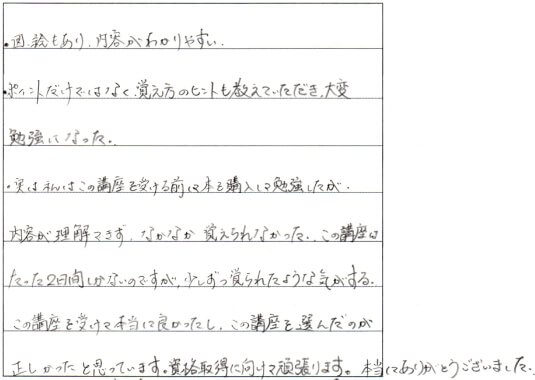 ・図、絵もあり、内容がわかりやすい。
・ポイントだけではなく、覚え方のヒントも教えていただき、大変
勉強になった。
・実は私はこの講座を受ける前は本を購入して勉強したが、
内容が理解できず、なかなか覚えられなかった。この講座は
たった2日間しかないのですが、少しずつ覚られたような気がする。
この講座を受けて本当に良かったし、この講座を選んだのが
正しかったと思っています。資格取得に向けて頑張ります。本当にありがとうございました。